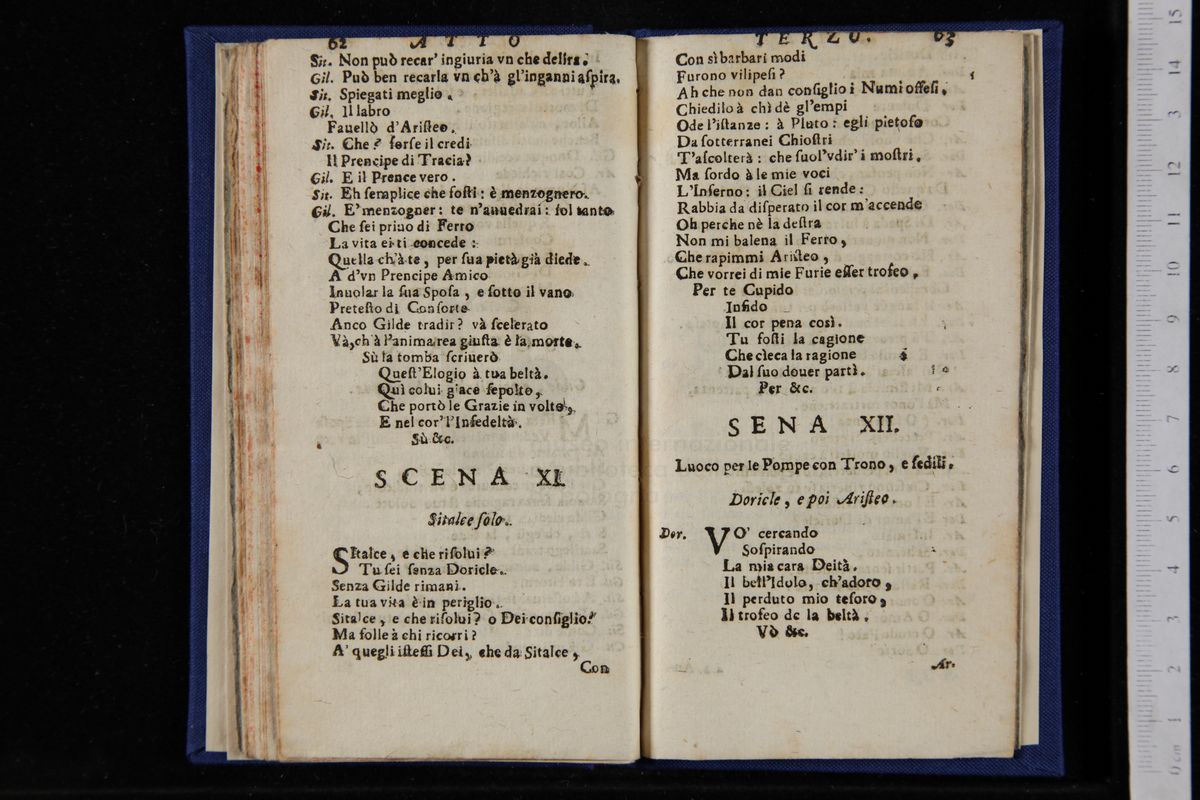 62 ATTO
Sit. Non può recar' ingiuria vn che delira.
Gil. Può ben recarla vn ch'à gl'inganni aſpira.
Sit. Spiegati meglio.
Gil. Il labro
Fauellò d'Ariſteo.
Sit. Che? forſe il credi
Il Prencipe di Tracia?
Gil. E il Prence vero.
Sit. Eh ſemplice che foſti: è menzognero.
Gil. E' menzogner: te n'auuedrai: ſol tanto
Che ſei priuo di Ferro
La vita ei ti concede:
Quella ch'à te, per ſua pietà già diede.
A d'vn Prencipe Amico
Inuolar la ſua Spoſa, e ſotto il vano
Preteſto di Conſorte
Anco Gilde tradir? và ſcelerato
Và, ch'à l'anima rea giuſta è la morte.
Sù la tomba ſcriuerò
Queſt'Elogio à tua beltà.
Quì colui giace ſepolto,
Che portò le Grazie in volto,
E nel cor l'Infedeltà.
Sù &c.
SCENA XI.
Sitalce ſolo.
SItalce, e che riſolui?
Tu ſei ſenza Doricle.
Senza Gilde rimani.
La tua vita è in periglio.
Sitalce, e che riſolui? o Dei conſiglio?
Ma folle à chi ricorri?
A' quegli iſteſſi Dei, che da Sitalce,
Con
TERZO. 63
Con sì barbari modi
Furono vilipeſi?
Ah che non dan conſiglio i Numi offeſi.
Chiedilo à chì dè gl'empi
Ode l'iſtanze: à Pluto: egli pietoſo
Da ſotterranei Chioſtri
T'aſcolterà: che ſuol'vdir' i moſtri.
Ma ſordo à le mie voci
L'Inferno: il Ciel ſi rende:
Rabbia da diſperato il cor m'accende
Oh perche nè la deſtra
Non mi balena il Ferro,
Che rapimmi Ariſteo,
Che vorrei di mie Furie eſſer trofeo.
Per te Cupido
Infido
Il cor pena così.
Tu foſti la cagione
Che cieca la ragione
Dal ſuo douer partì.
Per &c.
SENA XII.
Luoco per le Pompe con Trono, e ſedili.
Doricle, e poi Ariſteo.
Dor. VO' cercando
Soſpirando
La mia cara Deità.
Il bell'Idolo, ch'adoro,
Il perduto mio teſoro,
Il trofeo de la beltà.
Vò &c.
Ar.
15
14
13
12
11
10
9
8
7
6
5
4
3
2
1
0 cm